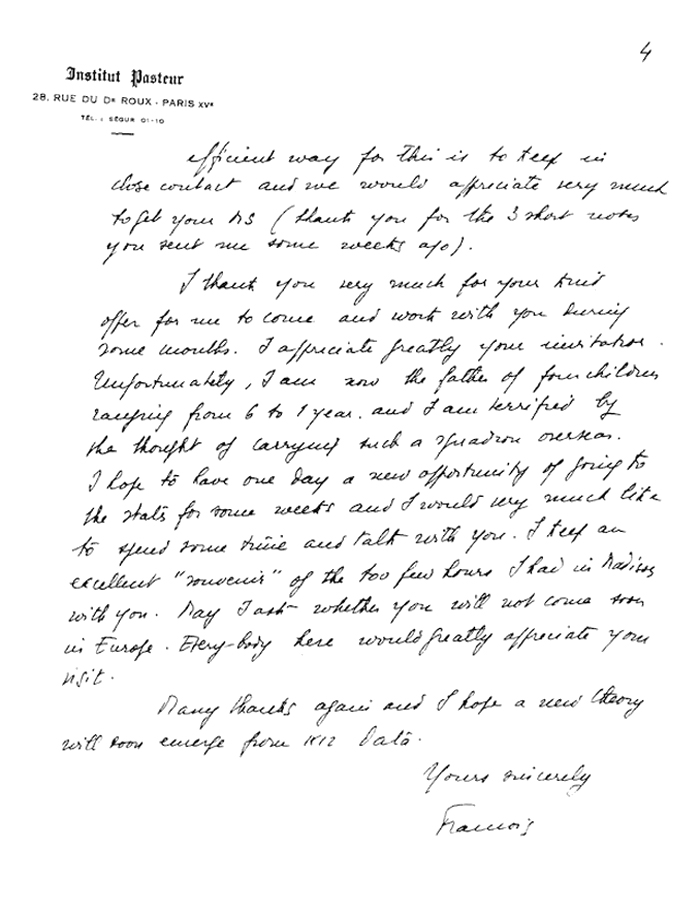 4
Institut Pasteur
28, RUE DU Dr ROUX - PARIS XVe
TÉL. : SÉGUR 01-10
efficient way for this is to keep in
close contact and we would appreciate very much
to get your MS (thank you for the 3 short notes
you sent me some weeks ago).
I thank you very much for your kind
offer for me to come and work with you during
some months. I appreciate greatly your invitation.
Unfortunately, I am now the father of four children
ranging from 6 to 1 year. and I am terrified by
the thought of carrying such a squadron overseas.
I hope to have one day a new opportunity of going to
the states for some weeks and I would very much like
to spend some time and talk with you. I keep an
excellent "souvenir" of the too few hours I had in Madison
with you. May I ask whether you will not come soon
in Europe. Every-body here would greatly appreciate your
visit.
Many thanks again and I hope a new theory
will soon emerge from K12 data.
Yours sincerely
Francois